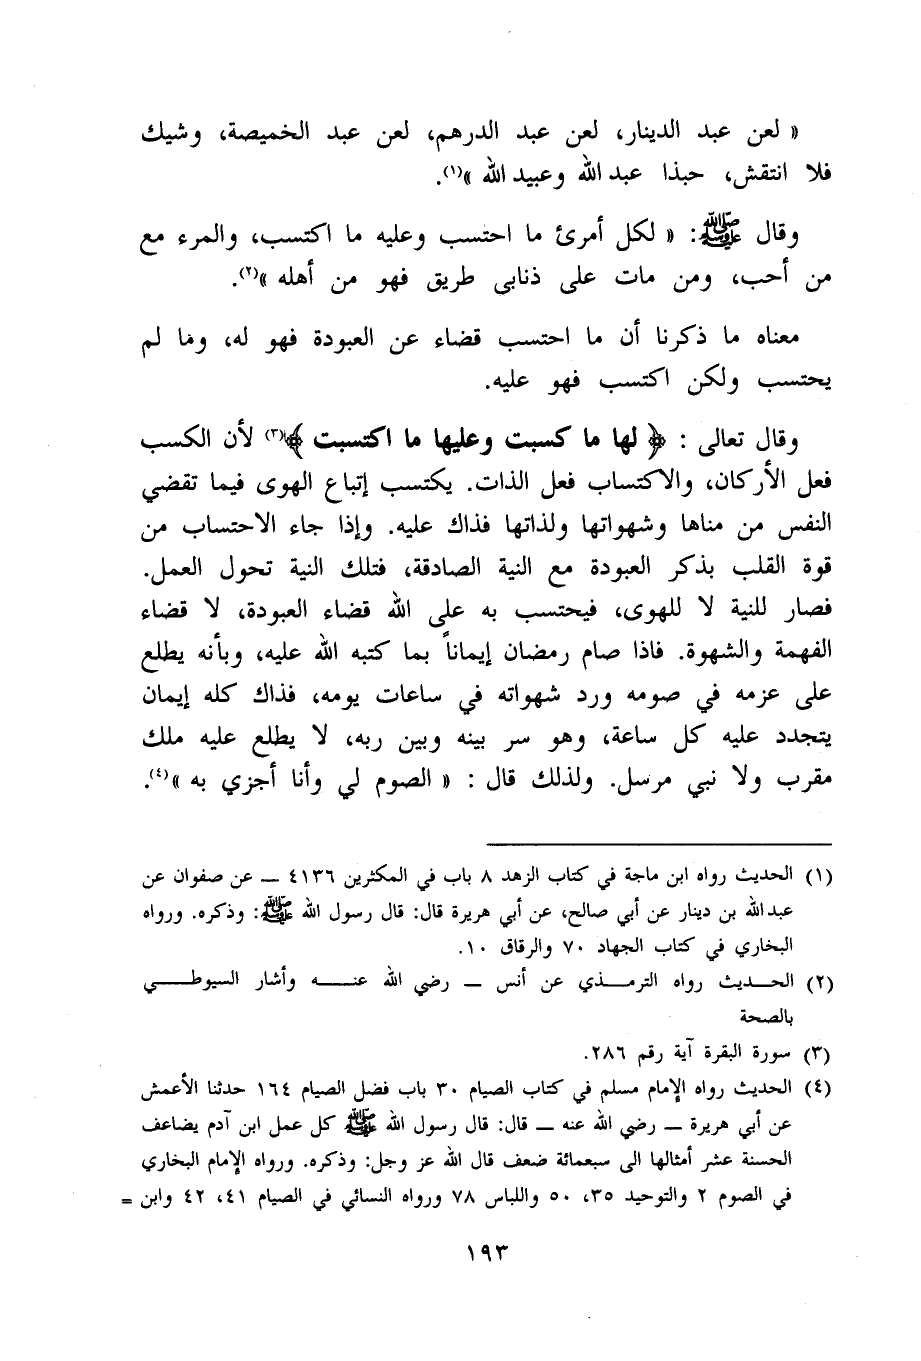 « لعن عبد الدينار، لعن عبد الدرهم، لعن عبد الخميصة، وشيك
فلا انتقش، حبذا عبد الله وعبيد الله »(١).
وقال ﷺ: « لكل أمرئ ما احتسب وعليه ما اكتسب، والمرء مع
من أحب، ومن مات على ذنابى طريق فهو من أهله »(٢).
معناه ما ذكرنا أن ما احتسب قضاء عن العبودة فهو له، وما لم
يحتسب ولكن اكتسب فهو عليه.
وقال تعالى : ﴿ لها ما كسبت وعليها ما اكتسبت ﴾(٣) لأن الكسب
فعل الأركان، والاكتساب فعل الذات. يكتسب إتباع الهوى فيما تقضي
النفس من مناها وشهواتها ولذاتها فذاك عليه. وإذا جاء الاحتساب من
قوة القلب بذكر العبودة مع النية الصادقة، فتلك النية تحول العمل.
فصار للنية لا للهوى، فيحتسب به على الله قضاء العبودة، لا قضاء
الفهمة والشهوة. فاذا صام رمضان إيماناً بما كتبه الله عليه، وبأنه يطلع
على عزمه في صومه ورد شهواته في ساعات يومه، فذاك كله إيمان
يتجدد عليه كل ساعة، وهو سر بينه وبين ربه، لا يطلع عليه ملك
مقرب ولا نبي مرسل. ولذلك قال : « الصوم لي وأنا أجزي به »(٤).
(١) الحديث رواه ابن ماجة في كتاب الزهد ٨ باب في المكثرين ٤١٣٦ ــ عن صفوان عن
عبدالله بن دينار عن أبي صالح، عن أبي هريرة قال: قال رسول الله ﷺ: وذكره. ورواه
البخاري في كتاب الجهاد ٧٠ والرقاق ١٠.
(٢) الحـديث رواه الترمـذي عن أنس ــ رضي الله عنـه وأشار السيوطـي
بالصحة
(٣) سورة البقرة آية رقم ٢٨٦.
(٤) الحديث رواه الإمام مسلم في كتاب الصيام ٣٠ باب فضل الصيام ١٦٤ حدثنا الأعمش
عن أبي هريرة ــ رضي الله عنه ــ قال: قال رسول الله ﷺ كل عمل ابن آدم يضاعف
الحسنة عشر أمثالها الى سبعمائة ضعف قال الله عز وجل: وذكره. ورواه الإمام البخاري
في الصوم ٢ والتوحيد ٣٥، ٥٠ واللباس ٧٨ ورواه النسائي في الصيام ٤١، ٤٢ وابن =
١٩٣